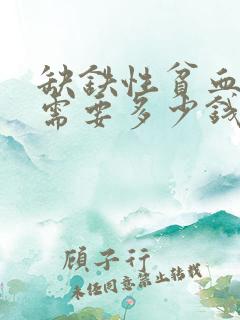 缺铁性贫血
需要多少钱
顾子行
未经同意禁止转载